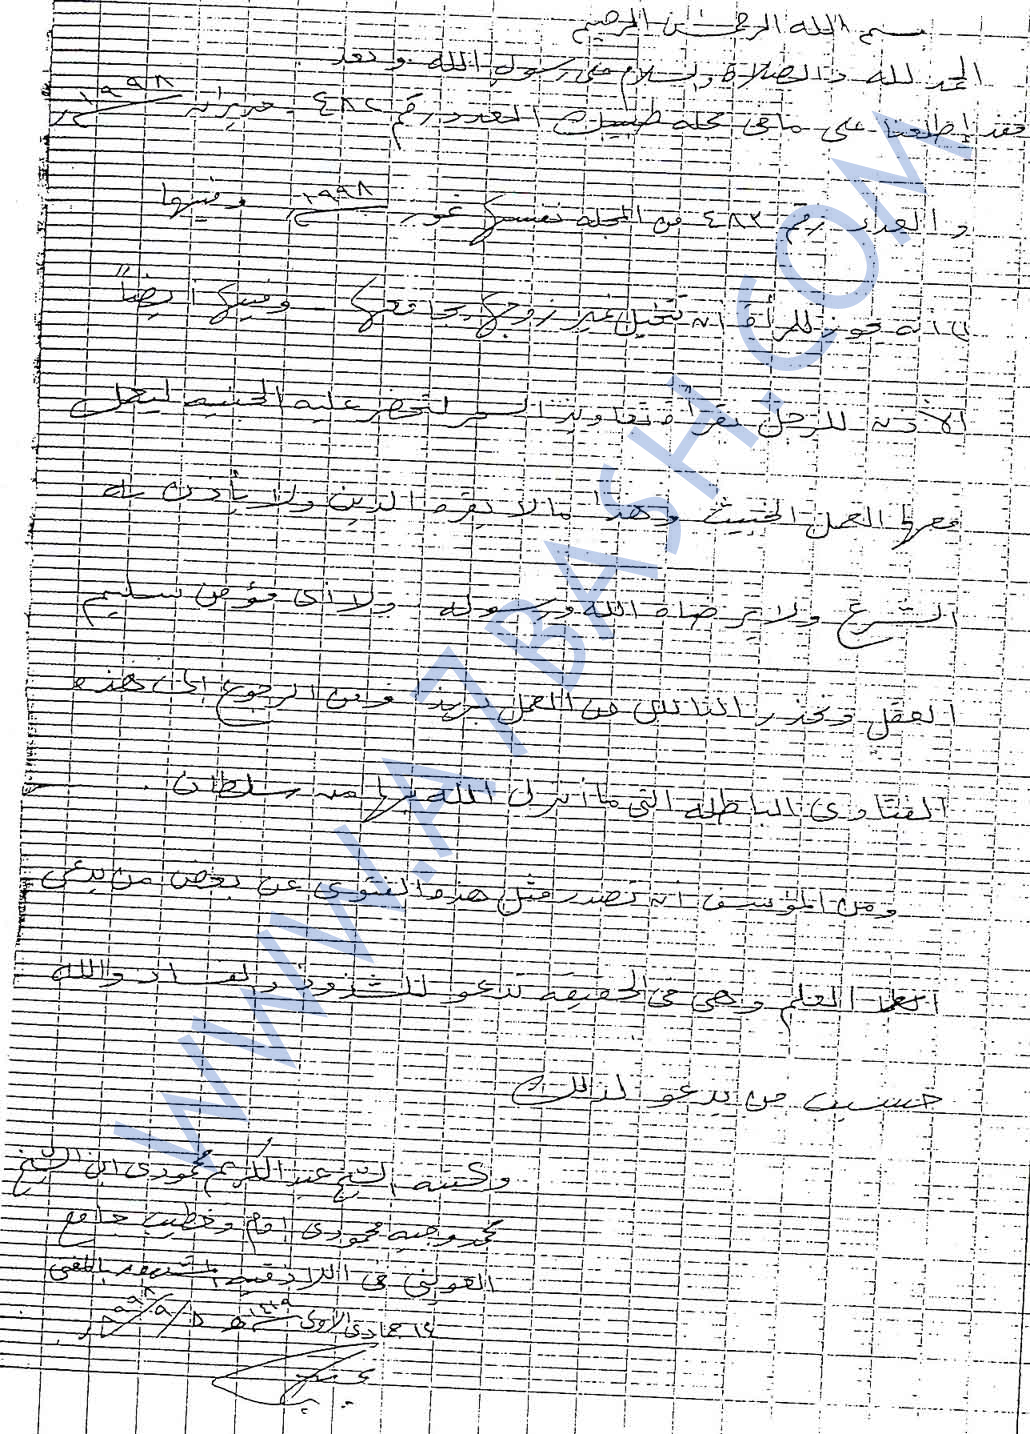 بسم الله الرحمن الرحيم
الحمد لله والصلاة والسلام على رسول الله وبعد
فقد إطلعنا على ما في مجلة طبيبك العدد رقم ٤٨٢ حزيران ١٩٩٨
و العدد رقم ٤٨٣ من المجلة نفسها تموز ١٩٩٨ وفيها
انه يجوز للمرأة ان تتخيل غير زوجها يجامعها وفيها ايضاً
الأذن للرجل بقرأة تعاويذ السحر لتحضر عليه الجنية ليعمل
معها العمل الخبيث وهذا ما لا يقره الدين ولا يأذن به
الشرع ولا يرضاه الله ورسوله ولا أي مؤمن سليم
العقل ونحذر الناس من العمل بهذا ومن الرجوع الى هذه
الفتاوى الباطلة التي ما أنزل الله بها من سلطان .
ومن المؤسف ان تصدر مثل هذه الفتوى عن بعض من يدعي
العلم وهي في الحقيقة تدعو للشذوذ والفساد والله
حسيب من يدعو لذلك
وكتبه الشيخ عبد الكريم محمودي ابن الشيخ
محمد وجيه محمودي امام وخطيب جامع
العويني في اللاذقية المشهور بالمفتي
١٤ جمادى الاولى ١٤١٩ هـ ٥/٩/٩٩٨
WWW.A7BASH.COM